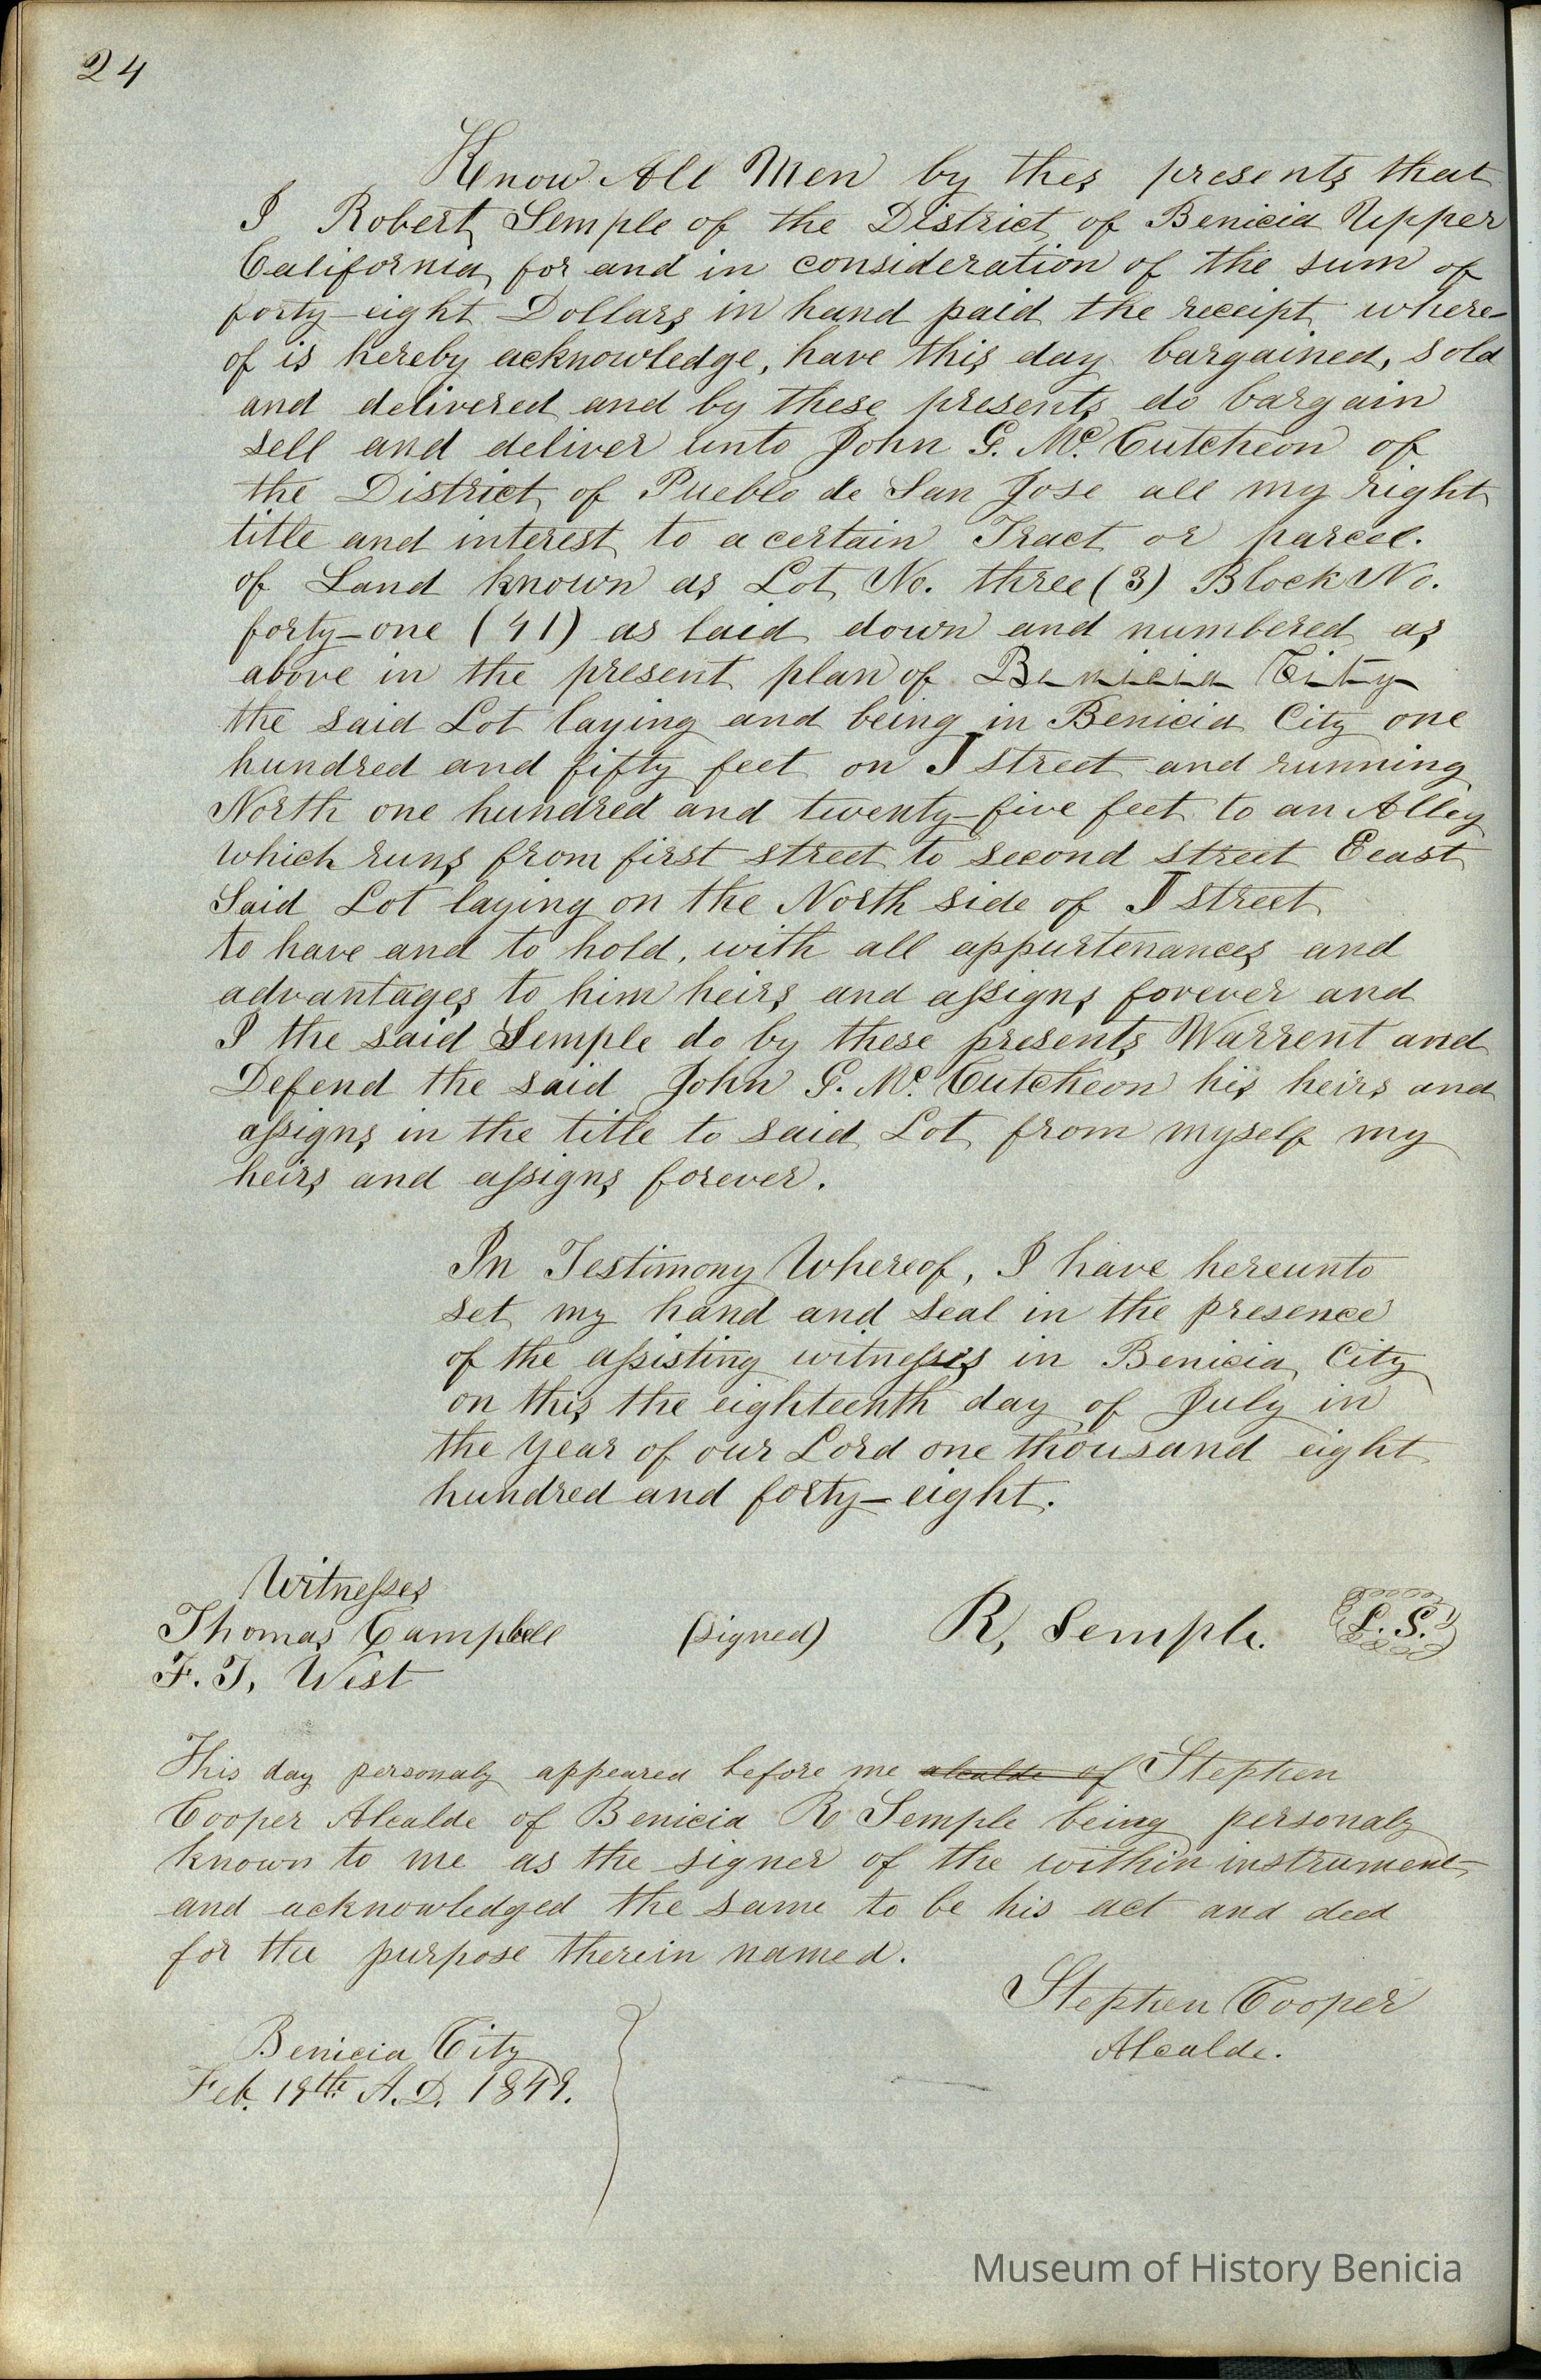 24
Know All Men by thes presents that
I Robert Semple of the District of Benicia Upper
California for and in consideration of the sum of
forty-eight Dollars in hand paid the receipt where-
of is hereby acknowledge, have this day bargained, sold
and delivered and by these presents do bargain
sell and deliver unto John G. Mc. Cutcheon of
the District of Pueblo de San Jose all my right
title and interest to a certain Tract or parcel.
of Land known as Lot No. three (3) Block No.
forty-one (41) as laid down and numbered as
above in the present plan of Benicia City
the said Lot laying and being in Benicia City one
hundred and fifty feet on J street and running
North one hundred and twenty-five feet to an Alley
which runs from first street to second street Eeast
Said Lot laying on the North side of J street
to have and to hold, with all appurtenances and
advantages to him heirs and assigns forever and
I the said Semple do by these presents Warrent and
Defend the said John G. Mc. Cutcheon his heirs and
assigns in the title to said Lot from myself my
heirs and assigns forever.
In Testimony Whereof, I have hereunto
set my hand and seal in the presence
of the assisting witnesses in Benicia City
on this the eighteenth day of July in
the year of our Lord one thousand eight
hundred and forty-eight.
Witnesses
Thomas Campbell (signed) R, Semple. L. S.
F. J, West
This day personaly appeared before me alcalde of Stephen
Cooper Alcalde of Benicia R Semple being personaly
known to me as the signer of the within instrument
and acknowledged the same to be his act and deed
for the purpose therein named.
Stephen Cooper
Alcalde.
Benicia City
Feb. 19th. A.D. 1849.
Museum of History Benicia